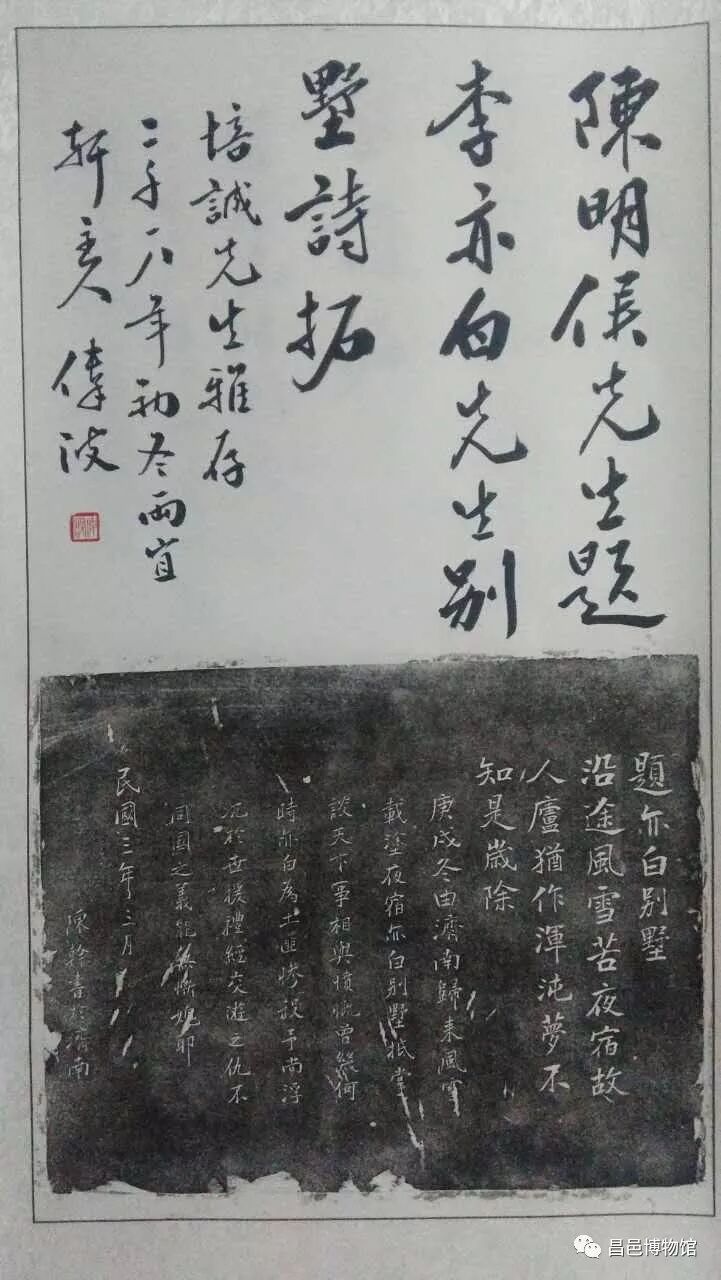 陳明侯先生題
李亦白先生别
墅詩拓
培誠先生雅存
二千〇八年初冬兩宜
軒主人偉波
題亦白别墅
沿途風雪苦夜宿故
人廬猶作渾沌夢不
知是歲除
庚戌冬由濟南歸來風雪
載塗夜宿亦白别墅抵掌
談天下事相與憤慨曾幾何
時亦白為土匪慘殺予尚浮
沉於世稽禮經交遊之仇不
同國之義能無慚愧耶
民國三年三月
陳幹書於濟南
昌邑博物馆